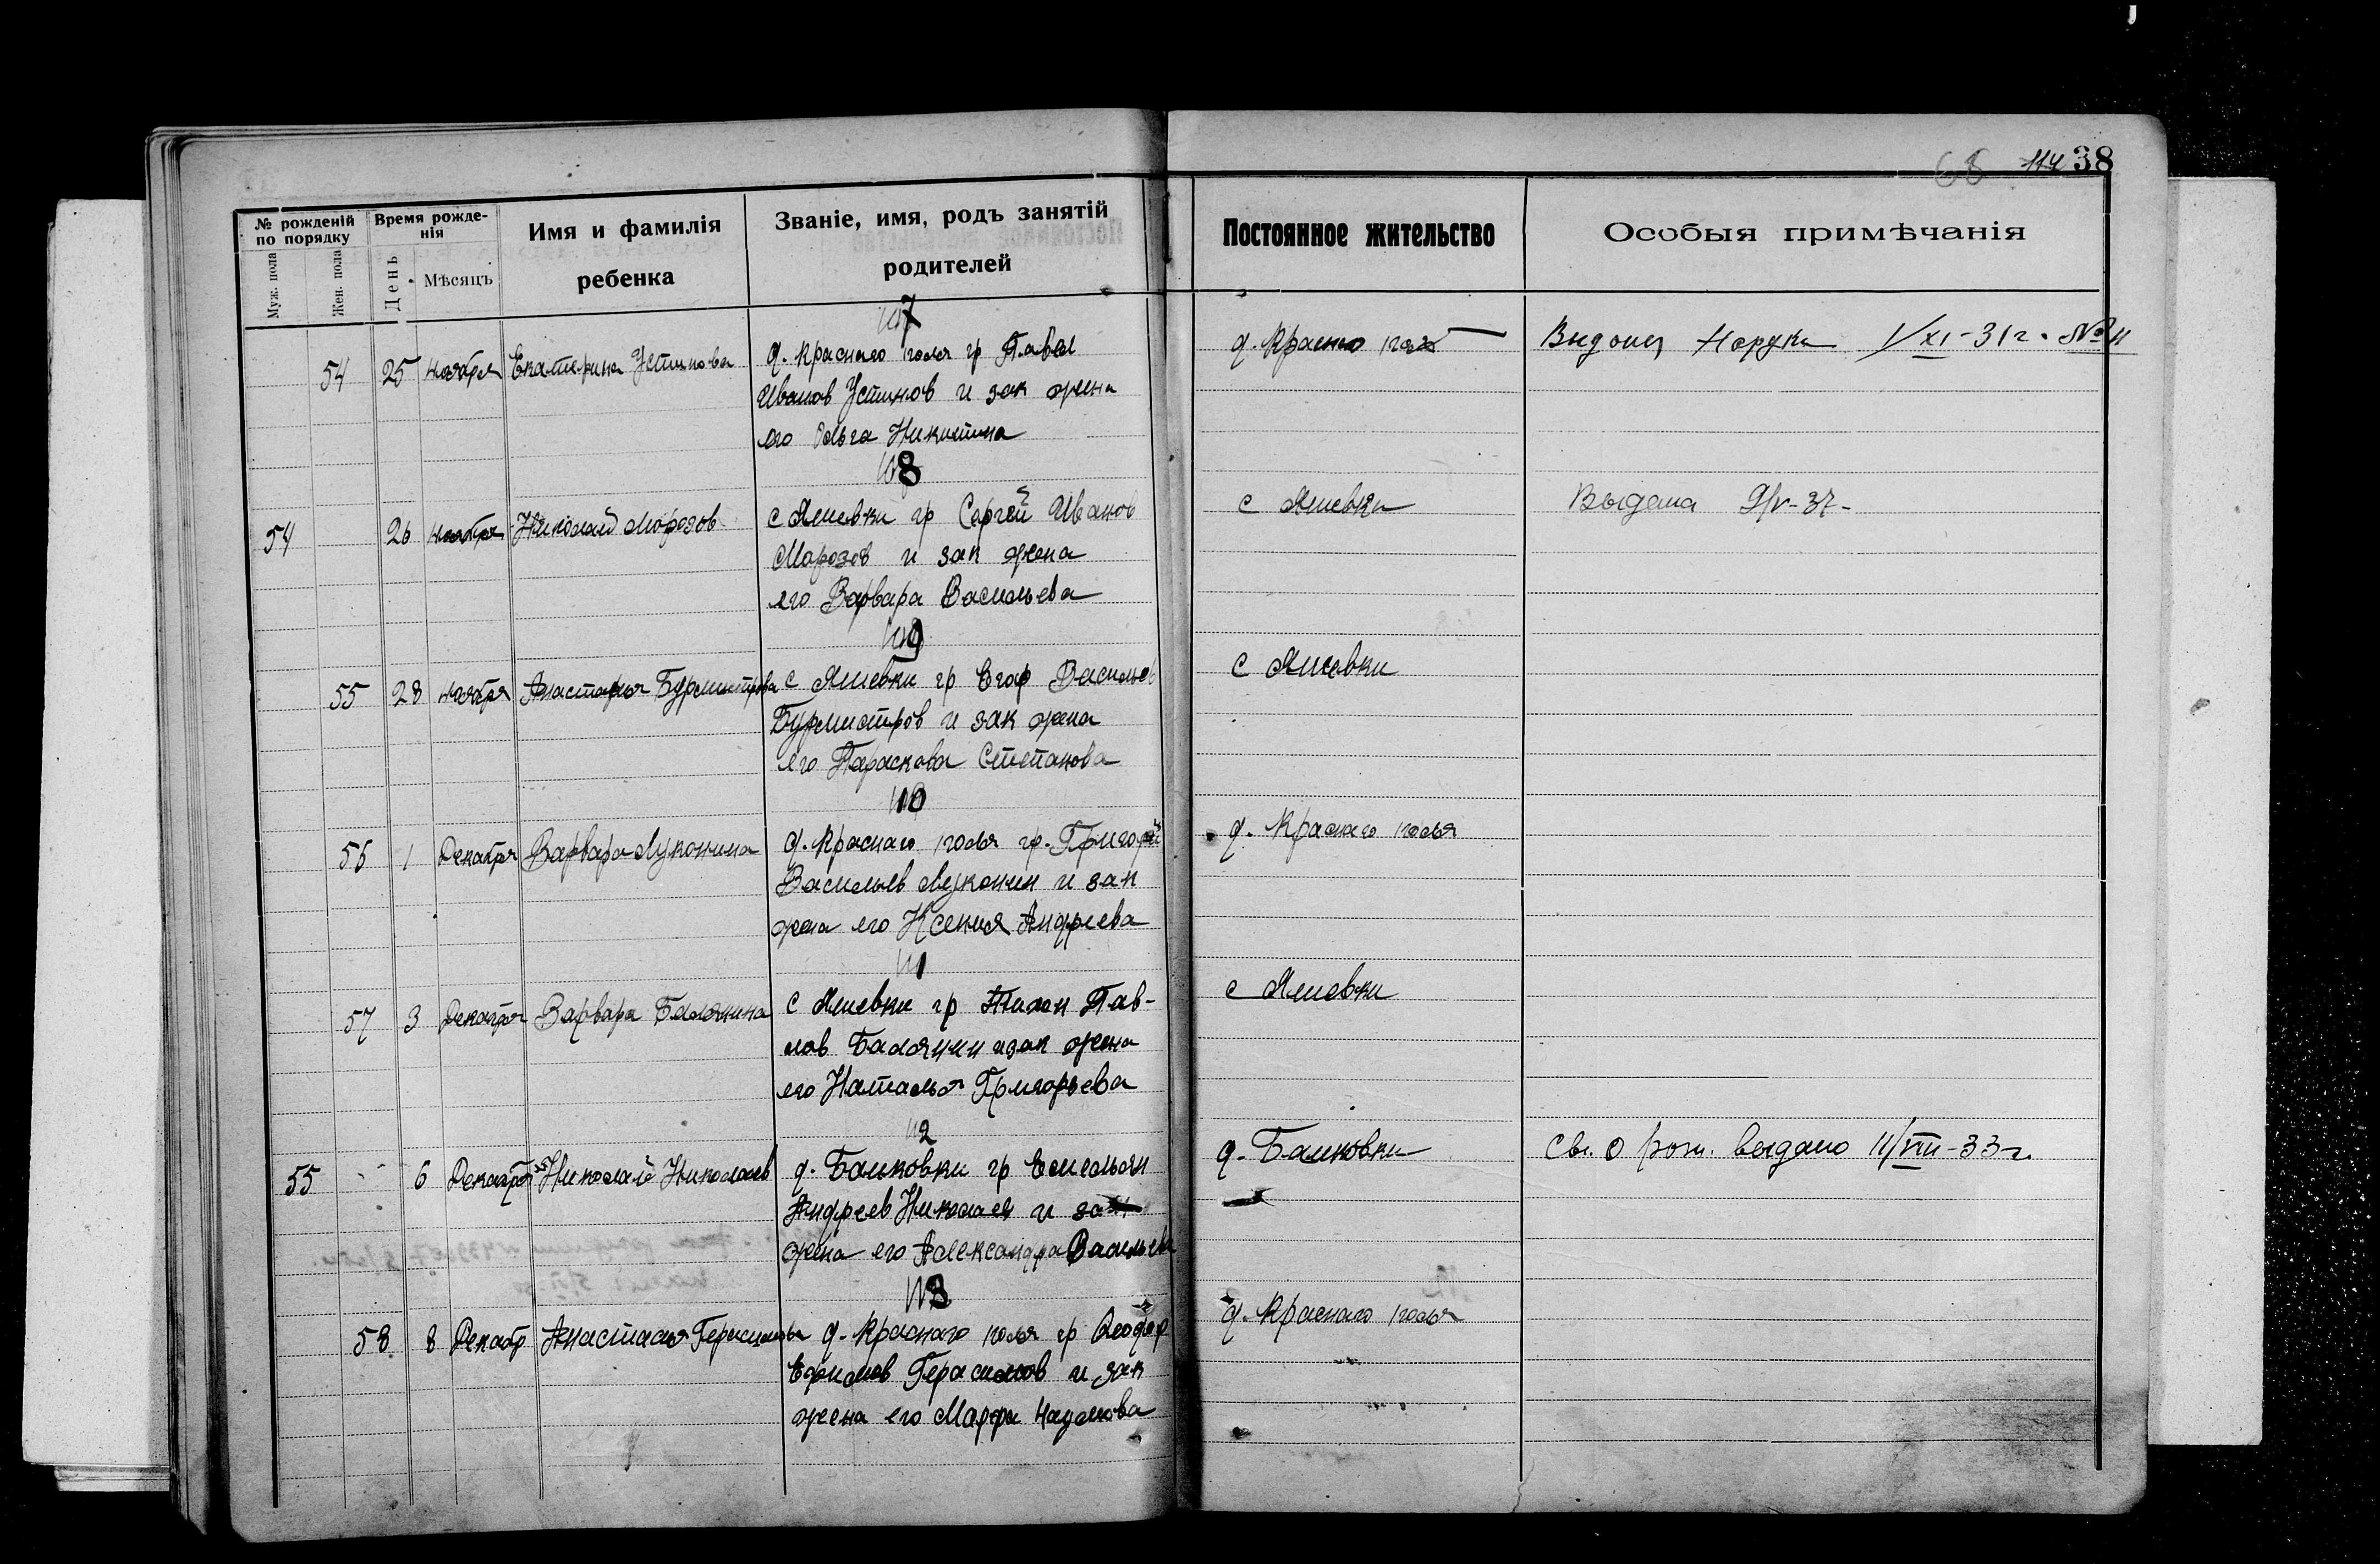 68 114 38
№ рожденій по порядку
Муж. пола
Жен. пола
Время рожде-
нія
День
Мѣсяцъ
Имя и фамилія
ребенка
Званіе, имя, родъ занятій
родителей
Постоянное жительство
Особыя примѣчанія
107
54 25 ноября Екатерина Устинова
д. Краснаго поля гр Павел
Иванов Устинов и зак жена
его Ольга Никитина
д. Красно поля
Выдона На руки 1/XI-31г. № 11
108
54 26 ноября Николай Морозов
с Ялшевки гр Сергей Иванов
Марозов и зак жена
его Варвара Васильева
с Ялшевки
Выдана 9/V-37-
109
55 28 ноября Анастасья Бурмистрова
с Ялшевки гр Егор Васильев
Бурмистров и зак жена
его Параскова Степанова
с Ялшевки
110
56 1 Декабря Варвара Луконина
д. Краснаго поля гр. Григорей
Васильев Луконин и зак
жена его Ксения Андреева
д. Краснаго поля
111
57 3 Декабря Варвара Балянина
с Ялшевки гр Тихон Пав-
лов Балянин и зак жена
его Наталья Григорьева
с Ялшевки
112
55 6 Декабря Николай Николаев
д. Банковки гр Емельян
Андреев Николаев и зак
жена его Александра Васильева
д. Банковки
Св. о рож. выдано 11/VIII-33г.
113
58 8 Декабр Анастасья Герасимова
д. Краснаго поля гр Феодор
Ефимов Герасимов и зак
жена его Марфа Наумова
д. Краснаго поля